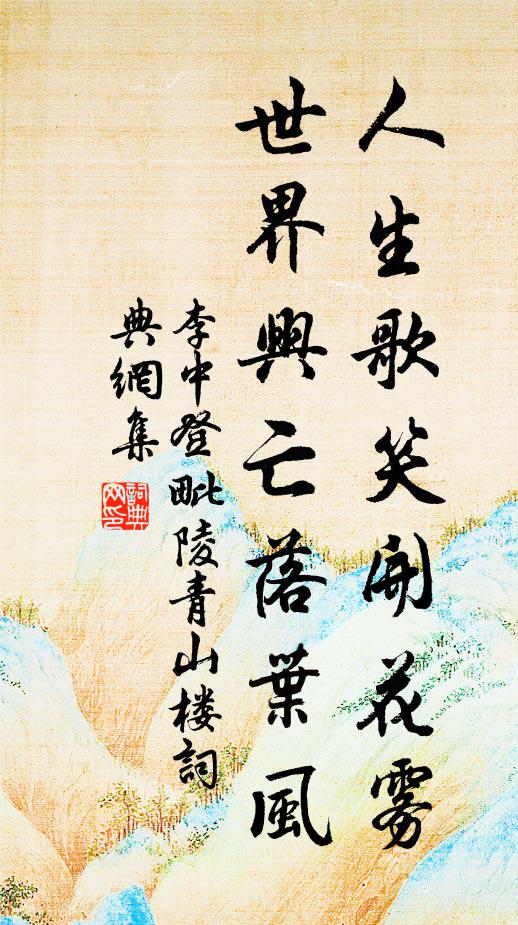 人生歌笑開花雾
世界興亡落葉風
李中登毗陵青山楼詞
典網集
詞典网印